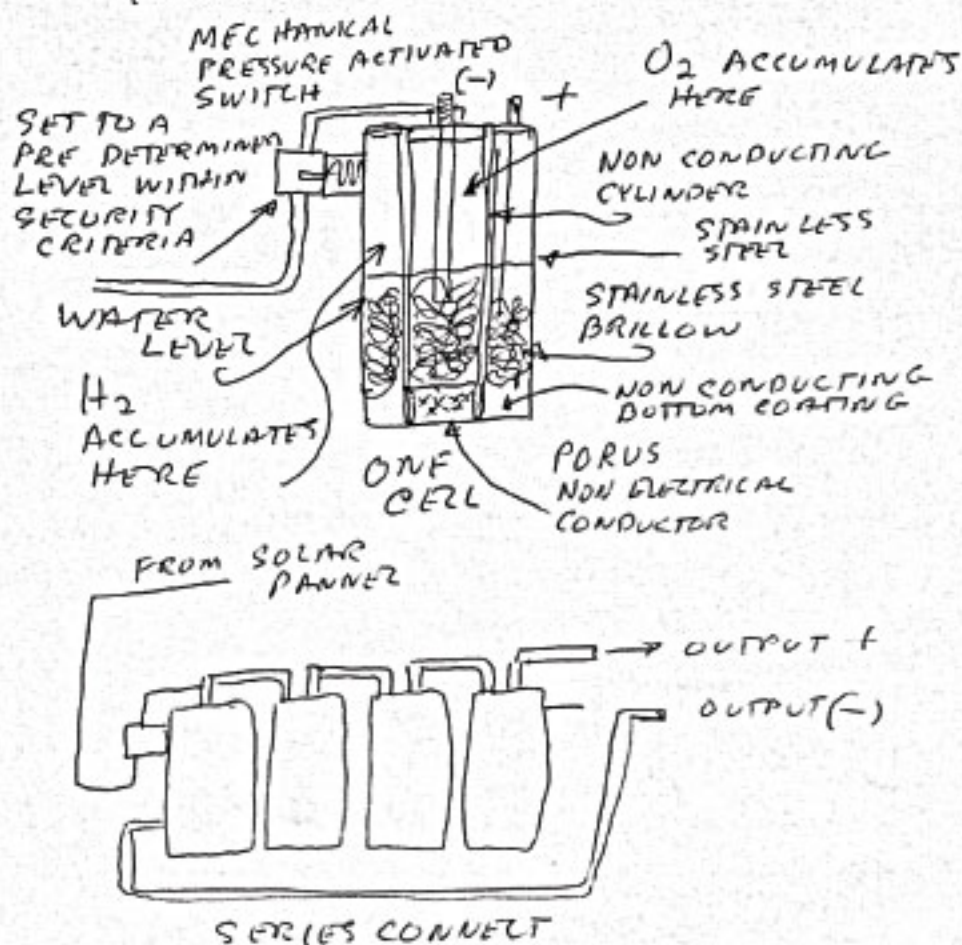 MECHANKAL
PRESSURE ACTIVATED
SWITCH
(-)
+
O2 ACCUMULATES
HERE
SET TO A
PRE DETERMINED
LEVEL WITHIN
SECURITY
CRITERIA
NON CONDUCTING
CYLINDER
STAINLESS
STEEL
STAINLESS STEEL
BRILLOW
WATER
LEVEL
NON CONDUCTING
BOTTOM COATING
H2
ACCUMULATES
HERE
ONE
CELL
PORUS
NON ELECTRICAL
CONDUCTOR
FROM SOLAR
PANNEL
OUTPUT +
OUTPUT (-)
SERIES CONNECT